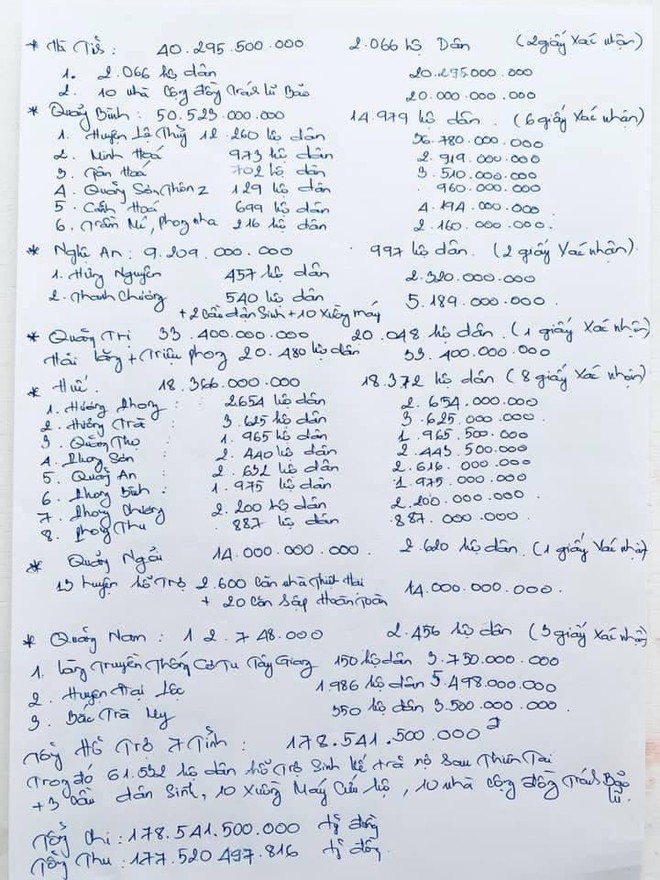 * Hà Tĩnh: 40.295.500.000 2.066 hộ Dân (2 giấy Xác nhận)
1. 2.066 hộ dân 20.295.000.000
2. 10 nhà Cộng đồng tránh lũ Bão 20.000.000.000
* Quảng Bình: 50.523.000.000 14.979 hộ dân (6 giấy Xác nhận)
1. Huyện Lệ Thủy 12.260 hộ dân 36.780.000.000
2. Minh Hoá 973 hộ dân 2.919.000.000
3. Tân Hoá 702 hộ dân 3.510.000.000
4. Quảng Sơn, Thôn 2 129 hộ dân 960.000.000
5. Cảnh Hoá 699 hộ dân 4.194.000.000
6. Trầm Mé, Phong nha 216 hộ dân 2.160.000.000
* Nghệ An: 9.209.000.000 997 hộ dân (2 giấy Xác nhận)
1. Hưng Nguyên 457 hộ dân 2.320.000.000
2. Thanh Chương 540 hộ dân 5.189.000.000
+ 2 Cầu dân Sinh + 10 Xuồng máy
* Quảng Trị 33.400.000.000 20.048 hộ dân (1 giấy Xác nhận)
Hải lăng + Triệu phong 20.480 hộ dân 33.400.000.000
* Huế: 18.366.000.000 18.372 hộ dân (8 giấy Xác nhận)
1. Hương Phong: 2654 hộ dân 2.654.000.000
2. Hương Trà: 3.625 hộ dân 3.625.000.000
3. Quảng Thọ 1.965 hộ dân 1.965.500.000
4. Phong Sơn: 2.440 hộ dân 2.443.500.000
5. Quảng An 2.632 hộ dân 2.616.000.000
6. Phong Bình: 1.975 hộ dân 1.975.000.000
7. Phong Chương 2.200 hộ dân 2.200.000.000
8. Phong Thu 887 hộ dân 887.000.000
* Quảng Ngãi 14.000.000.000 2.620 hộ dân (1 giấy Xác nhận)
13 huyện hỗ Trợ 2.600 Căn nhà Thiệt Hại 14.000.000.000
+ 20 Căn Sập Hoàn Toàn
* Quảng Nam: 12.748.000 2.456 hộ dân (3 giấy Xác nhận)
1. làng Truyền Thống Cơ Tu Tây Giang 150 hộ dân 3.750.000.000
2. Huyện Đại Lộc 1.986 hộ dân 5.498.000.000
3. Bắc Trà My 350 hộ dân 3.500.000.000
Tổng Hỗ Trợ 7 Tỉnh: 178.541.500.000
Trong đó 61.532 hộ dân hỗ Trợ Sinh kế trả nợ Sau Thiên Tai
+ 3 Cầu dân Sinh, 10 Xuồng Máy Cứu hộ, 10 nhà Cộng đồng Tránh Bão lũ.
Tổng Chi: 178.541.500.000 tỷ đồng
Tổng Thu: 177.520.497.816 tỷ đồng